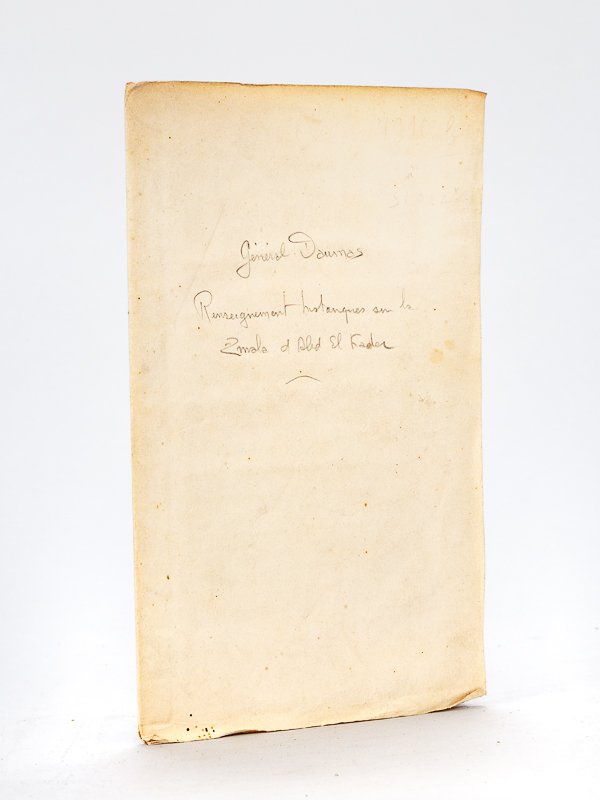 Général Daumas
Renseignement historiques sur la
Zmala d'Abd El Kader